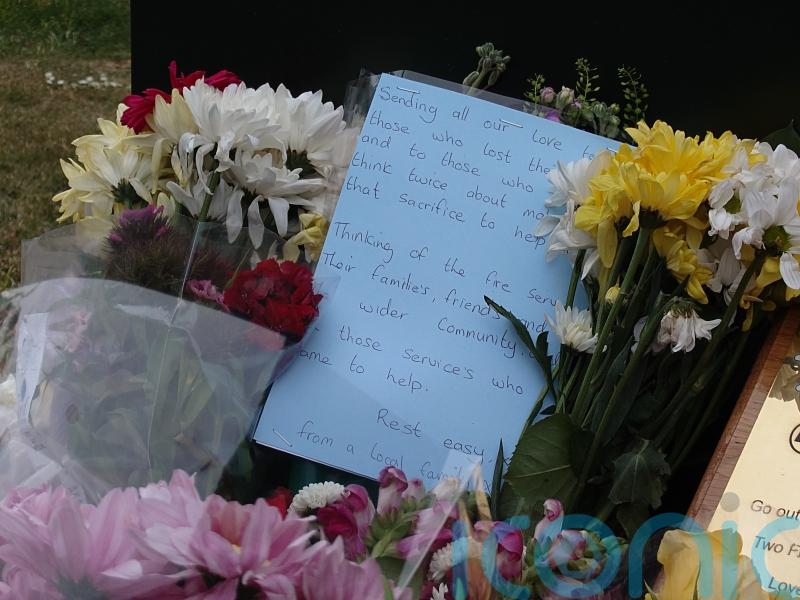 Sending all our love
those who lost the
and to those who
think twice about
that sacrifice to help
Thinking of the fire
Their families, friends and
wider Community,
those service's who
to help.
Rest easy
from a local
Go out
Two
Love
iconic